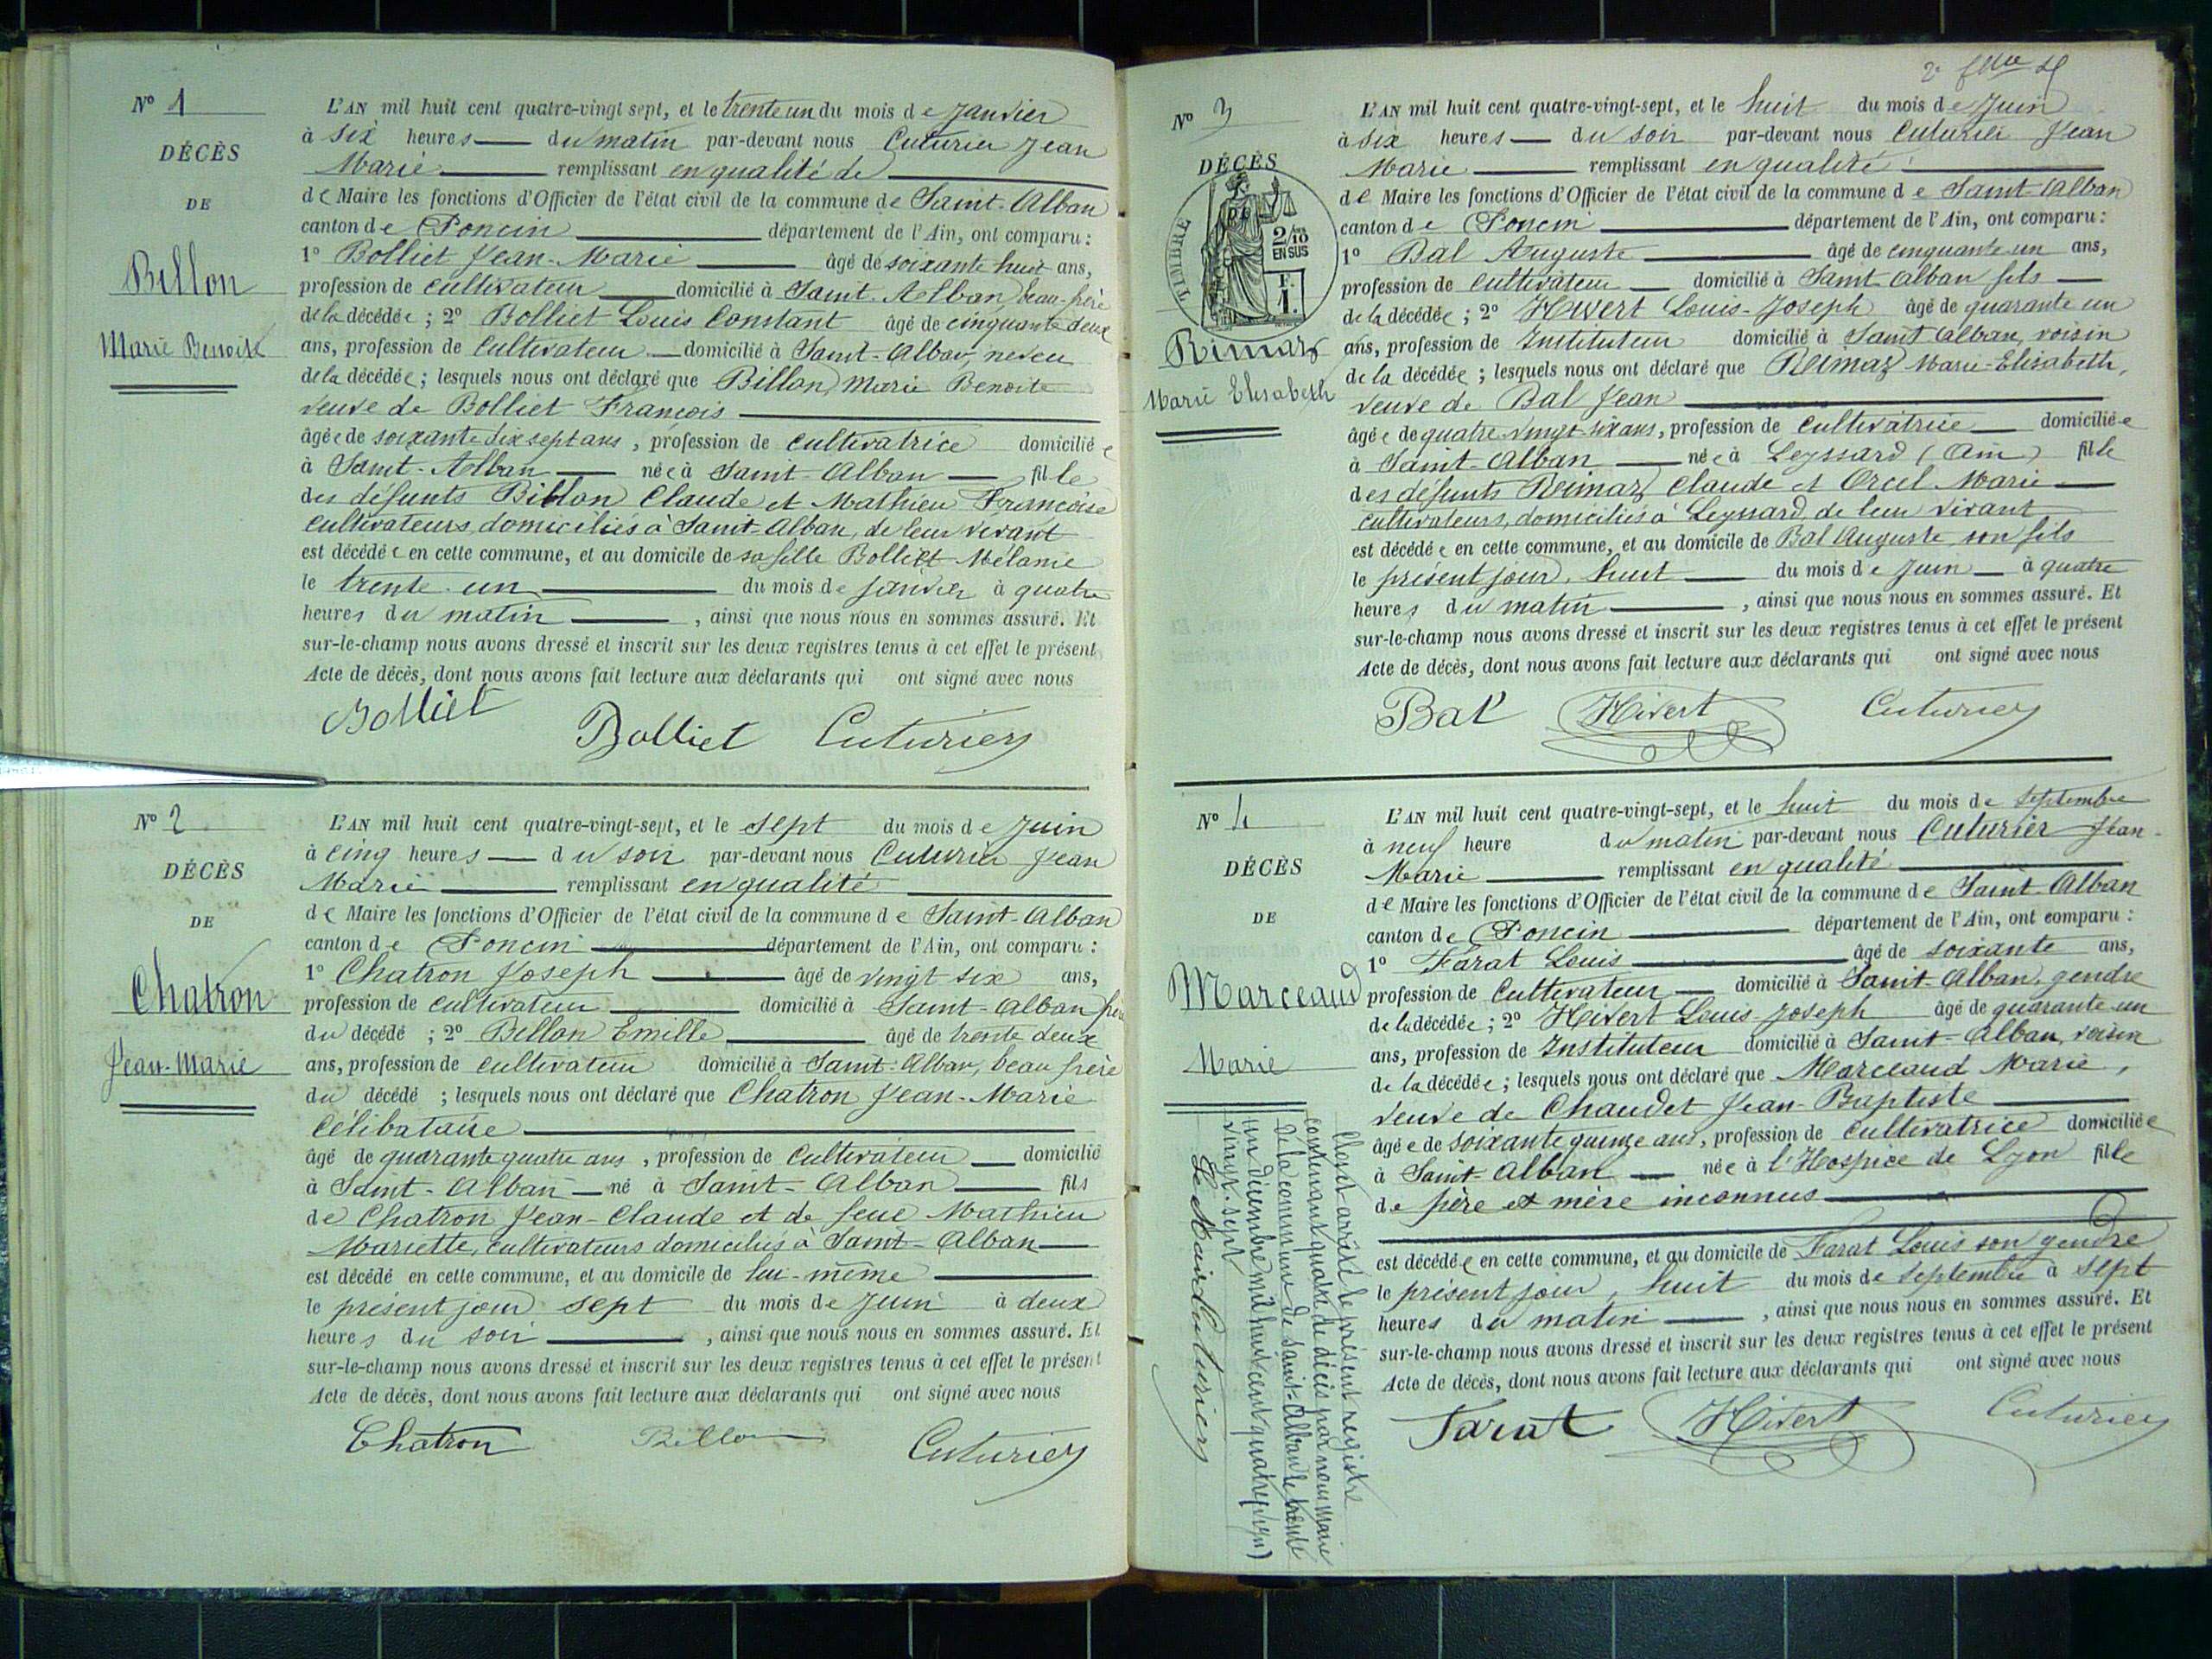 N° 1
DÉCÈS
DE
Billon
Marie Benoite
L'AN mil huit cent quatre-vingt sept, et le trente un du mois de Janvier
à six heures du matin par-devant nous Cuturier Jean
Marie remplissant en qualité de
de Maire les fonctions d'Officier de l'état civil de la commune de Saint-Alban
canton de Poncin département de l'Ain, ont comparu :
1° Bolliet Jean-Marie âgé de soixante huit ans,
profession de cultivateur domicilié à Saint-Alban beau-frère
de la décédée ; 2° Bolliet Louis Constant âgé de cinquante deux
ans, profession de Cultivateur domicilié à Saint-Alban, neveu
de la décédée ; lesquels nous ont déclaré que Billon Marie Benoite
veuve de Bolliet François
âgée de soixante dix sept ans, profession de cultivatrice domiciliée
à Saint-Alban née à Saint-Alban fille
des défunts Billon Claude et Mathieu Françoise
cultivateurs, domiciliés à Saint-Alban, de leur vivant
est décédée en cette commune, et au domicile de sa fille Bolliet Mélanie
le trente-un du mois de janvier à quatre
heures du matin, ainsi que nous nous en sommes assuré. Et
sur-le-champ nous avons dressé et inscrit sur les deux registres tenus à cet effet le présent
Acte de décès, dont nous avons fait lecture aux déclarants qui ont signé avec nous
Bolliet Bolliet Cuturier
N° 2
DÉCÈS
DE
Chatron
Jean-Marie
L'AN mil huit cent quatre-vingt-sept, et le sept du mois de Juin
à cinq heures du soir par-devant nous Cuturier Jean
Marie remplissant en qualité
de Maire les fonctions d'Officier de l'état civil de la commune de Saint-Alban
canton de Poncin département de l'Ain, ont comparu :
1° Chatron Joseph âgé de vingt six ans,
profession de cultivateur domicilié à Saint-Alban frère
du décédé ; 2° Billon Emille âgé de trente deux
ans, profession de cultivateur domicilié à Saint-Alban, beau frère
du décédé ; lesquels nous ont déclaré que Chatron Jean-Marie
Célibataire
âgé de quarante quatre ans, profession de Cultivateur domicilié
à Saint-Alban né à Saint-Alban fils
de Chatron Jean-Claude et de feue Mathieu
Mariette, cultivateurs domiciliés à Saint-Alban
est décédé en cette commune, et au domicile de lui-même
le présent jour sept du mois de Juin à deux
heures du soir, ainsi que nous nous en sommes assuré. Et
sur-le-champ nous avons dressé et inscrit sur les deux registres tenus à cet effet le présent
Acte de décès, dont nous avons fait lecture aux déclarants qui ont signé avec nous
Chatron Billon Cuturier
2e
N° 3
DÉCÈS
DE
TIMBRE
2/10
EN SUS
F.
1.
Rimaz
Marie Elisabeth
L'AN mil huit cent quatre-vingt-sept, et le huit du mois de Juin
à six heures du soir par-devant nous Cuturier Jean
Marie remplissant en qualité
de Maire les fonctions d'Officier de l'état civil de la commune de Saint-Alban
canton de Poncin département de l'Ain, ont comparu :
1° Bal Auguste âgé de cinquante un ans,
profession de cultivateur domicilié à Saint Alban fils
de la décédée ; 2° Hivert Louis-Joseph âgé de quarante un
ans, profession de Instituteur domicilié à Saint Alban, voisin
de la décédée ; lesquels nous ont déclaré que Reimaz Marie-Elisabeth,
veuve de Bal Jean
âgée de quatre-vingt-six ans, profession de cultivatrice domiciliée
à Saint-Alban née à Leyssard (Ain) fille
des défunts Reimaz Claude et Orcel Marie
cultivateurs, domiciliés à Leyssard, de leur vivant
est décédée en cette commune, et au domicile de Bal Auguste son fils
le présent jour, huit du mois de Juin à quatre
heures du matin, ainsi que nous nous en sommes assuré. Et
sur-le-champ nous avons dressé et inscrit sur les deux registres tenus à cet effet le présent
Acte de décès, dont nous avons fait lecture aux déclarants qui ont signé avec nous
Bal Hivert Cuturier
N° 4
DÉCÈS
DE
Marceaud
Marie
L'AN mil huit cent quatre-vingt-sept, et le huit du mois de Septembre
à neuf heure du matin par-devant nous Cuturier Jean-
Marie remplissant en qualité
de Maire les fonctions d'Officier de l'état civil de la commune de Saint-Alban
canton de Poncin département de l'Ain, ont comparu :
1° Farat Louis âgé de soixante ans,
profession de Cultivateur domicilié à Saint-Alban, gendre
de la décédée ; 2° Hivert Louis-Joseph âgé de quarante-un
ans, profession de Instituteur domicilié à Saint-Alban, voisin
de la décédée ; lesquels nous ont déclaré que Marceaud Marie,
veuve de Chaudet Jean-Baptiste
âgée de soixante quinze ans, profession de cultivatrice domiciliée
à Saint-Alban née à l'Hospice de Lyon fille
de père et mère inconnus
est décédée en cette commune, et au domicile de Farat Louis son gendre
le présent jour, huit du mois de Septembre à sept
heures du matin, ainsi que nous nous en sommes assuré. Et
sur-le-champ nous avons dressé et inscrit sur les deux registres tenus à cet effet le présent
Acte de décès, dont nous avons fait lecture aux déclarants qui ont signé avec nous
Farat Hivert Cuturier
Clos et arrêté le présent registre
contenant quatre de décès par nous Maire
de la commune de Saint-Alban le trente
un décembre mil huit cent quatre-
vingt-sept
Le Maire Cuturier